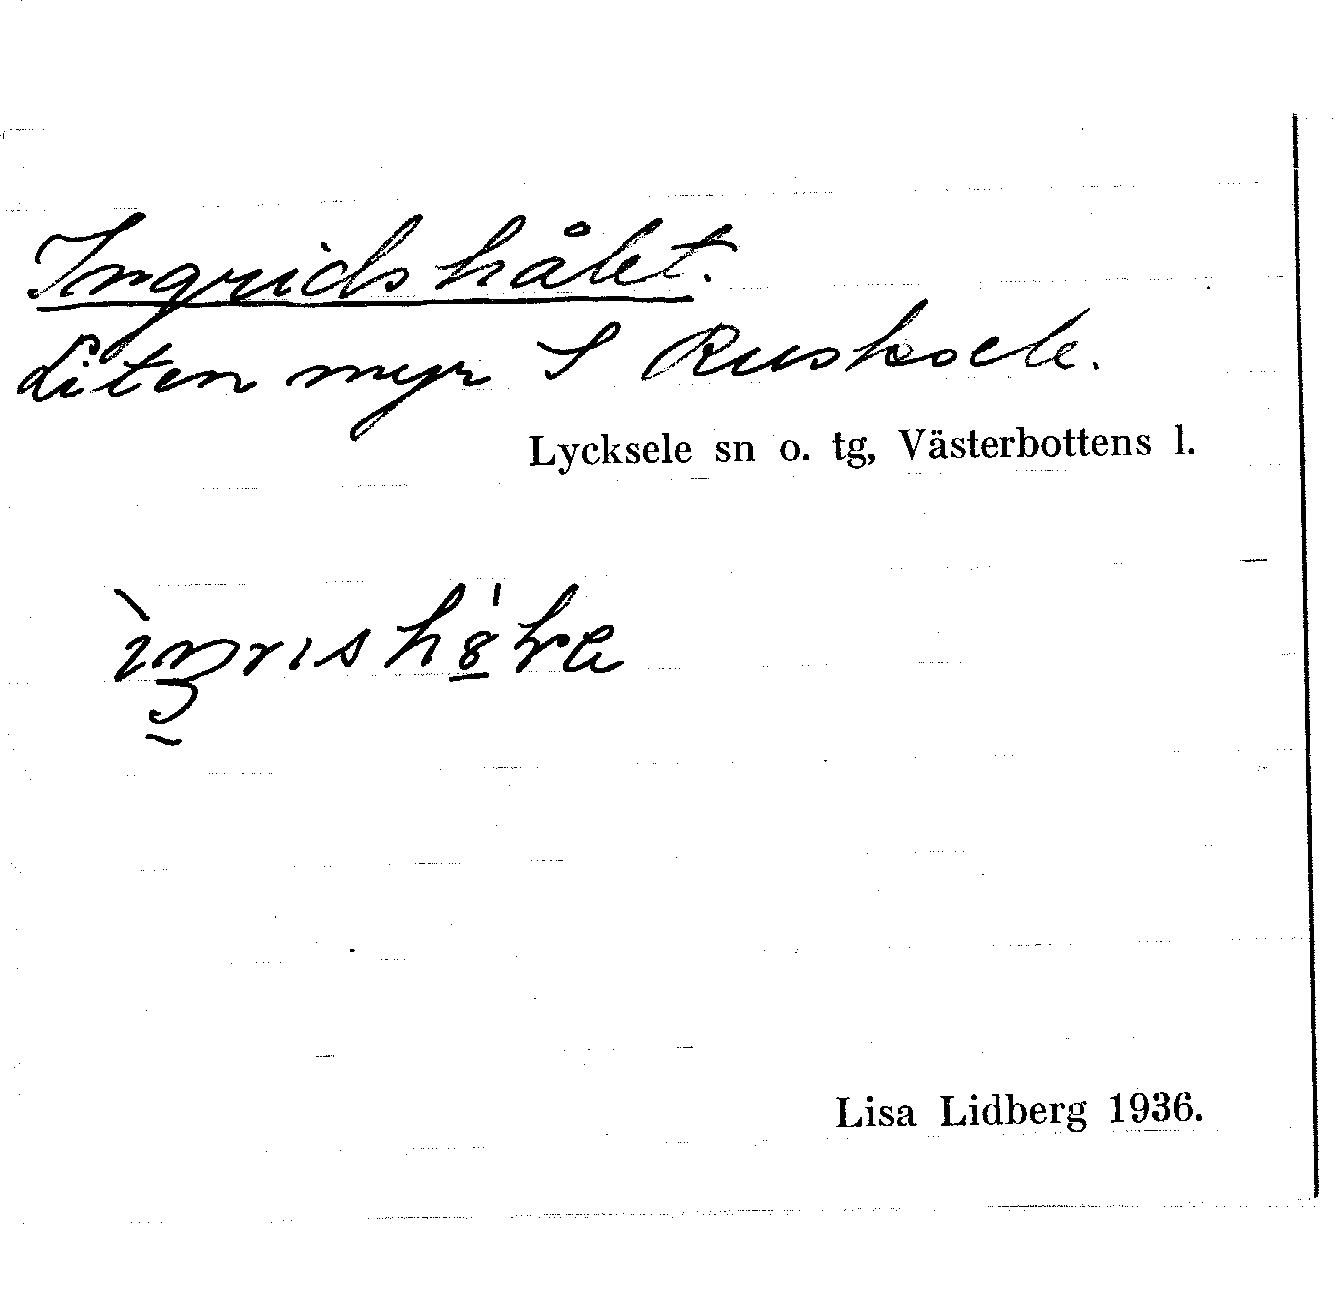 Ingridshålet.
Liten myr S Rusksele.
Lycksele sn o. tg, Västerbottens l.
Lisa Lidberg 1936.